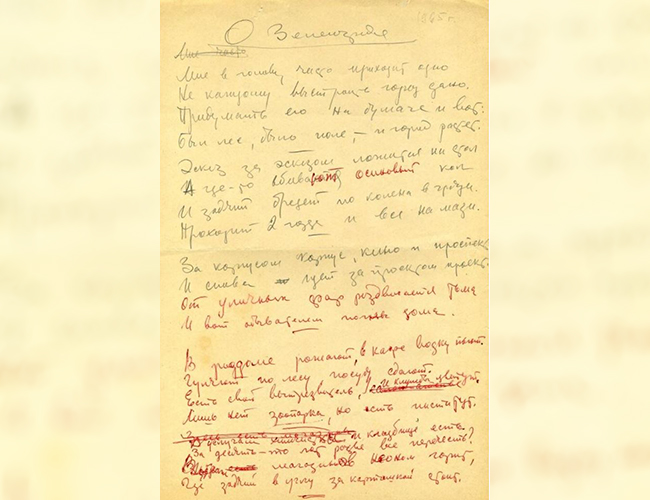 О Зеленограде
1965 г.
Мне часто
Мне в голову часто приходит одно
Не каждому выстроить город дано.
Придумать его на бумаге и вот:
Был лес, было поле, – и город растет.
Эскиз за эскизом ложится на стол
А где-то вбивают осиновый кол
И зодчий бредет по колена в грязи.
Проходит 2 года и все на мази.
За корпусом корпус, кино и проспект
И снова идет за проектом проект.
От уличных фар раздвигается тьма
И вот обывателем полны дома.
В роддоме рожают, в кафе водку пьют.
Гуляют по лесу посуду сдают.
Есть свой вытрезвитель, и клумбы цветут.
Лишь нет зоопарка, но есть институт.
и кладбище есть.
За десять-то лет разве все перечесть?
магазинов неоном горит,
Где зодчий в углу за картошкой стоит.